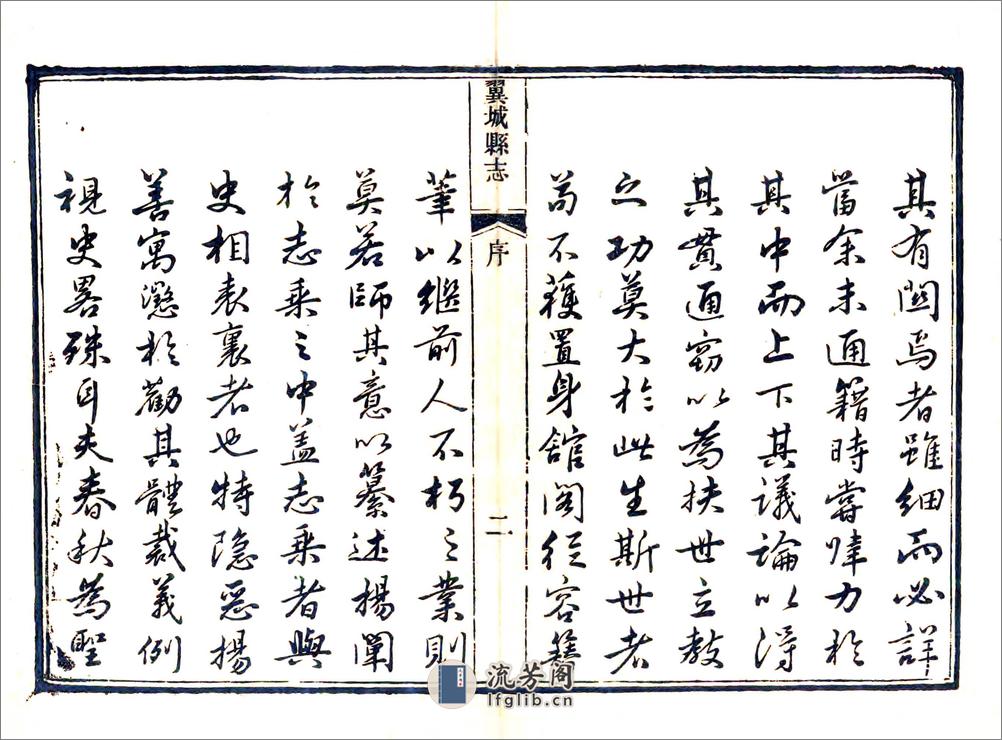 其有關焉者雖細而必詳
當余未通籍時嘗肆力於
其中而上下其議論以得
其貫通竊以為扶世立教
之功莫大於此生斯世者
苟不獲置身館閣從容簪
翼城縣志
序
二
筆以繼前人不朽之業則
莫若師其意以纂述揚闡
於志乘之中蓋志乘者與
史相表裏者也特隱惡揚
善寓懲於勸其體裁義例
視史畧殊耳夫春秋為聖
流芳阁
lfglib.cn